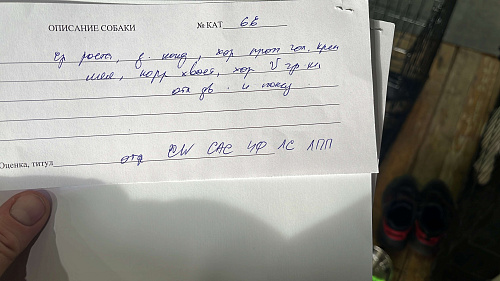 ОПИСАНИЕ СОБАКИ № КАТ 68
ср роста, в. конд, хор проп гол, креп
шея, корр хвост, хор V гр кл
отл дв. и
Оценка, титул отл CW CAC ЧФ ЛС ЛПП